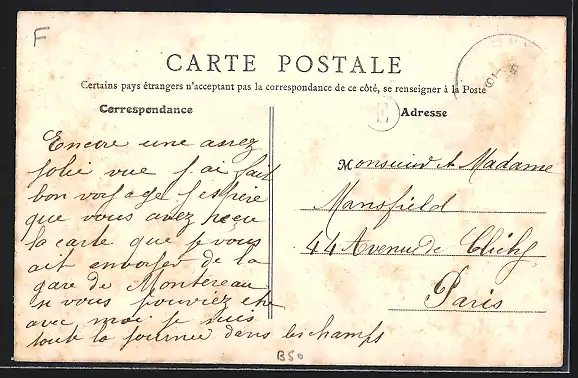 F
CARTE POSTALE
Certains pays étrangers n'acceptant pas la correspondance de ce côté, se renseigner à la Poste
Correspondance
E
Adresse
Encore une assez
jolie vue j'ai fait
bon voyage j'espère
que vous avez reçu
la carte que je vous
ait envoyer de la
gare de Montereau
si vous pouviez etre
avec moi je suis
toute la journée dans les champs
Monsieur et Madame
Mansfield
44 Avenue de Clichy
Paris
B50